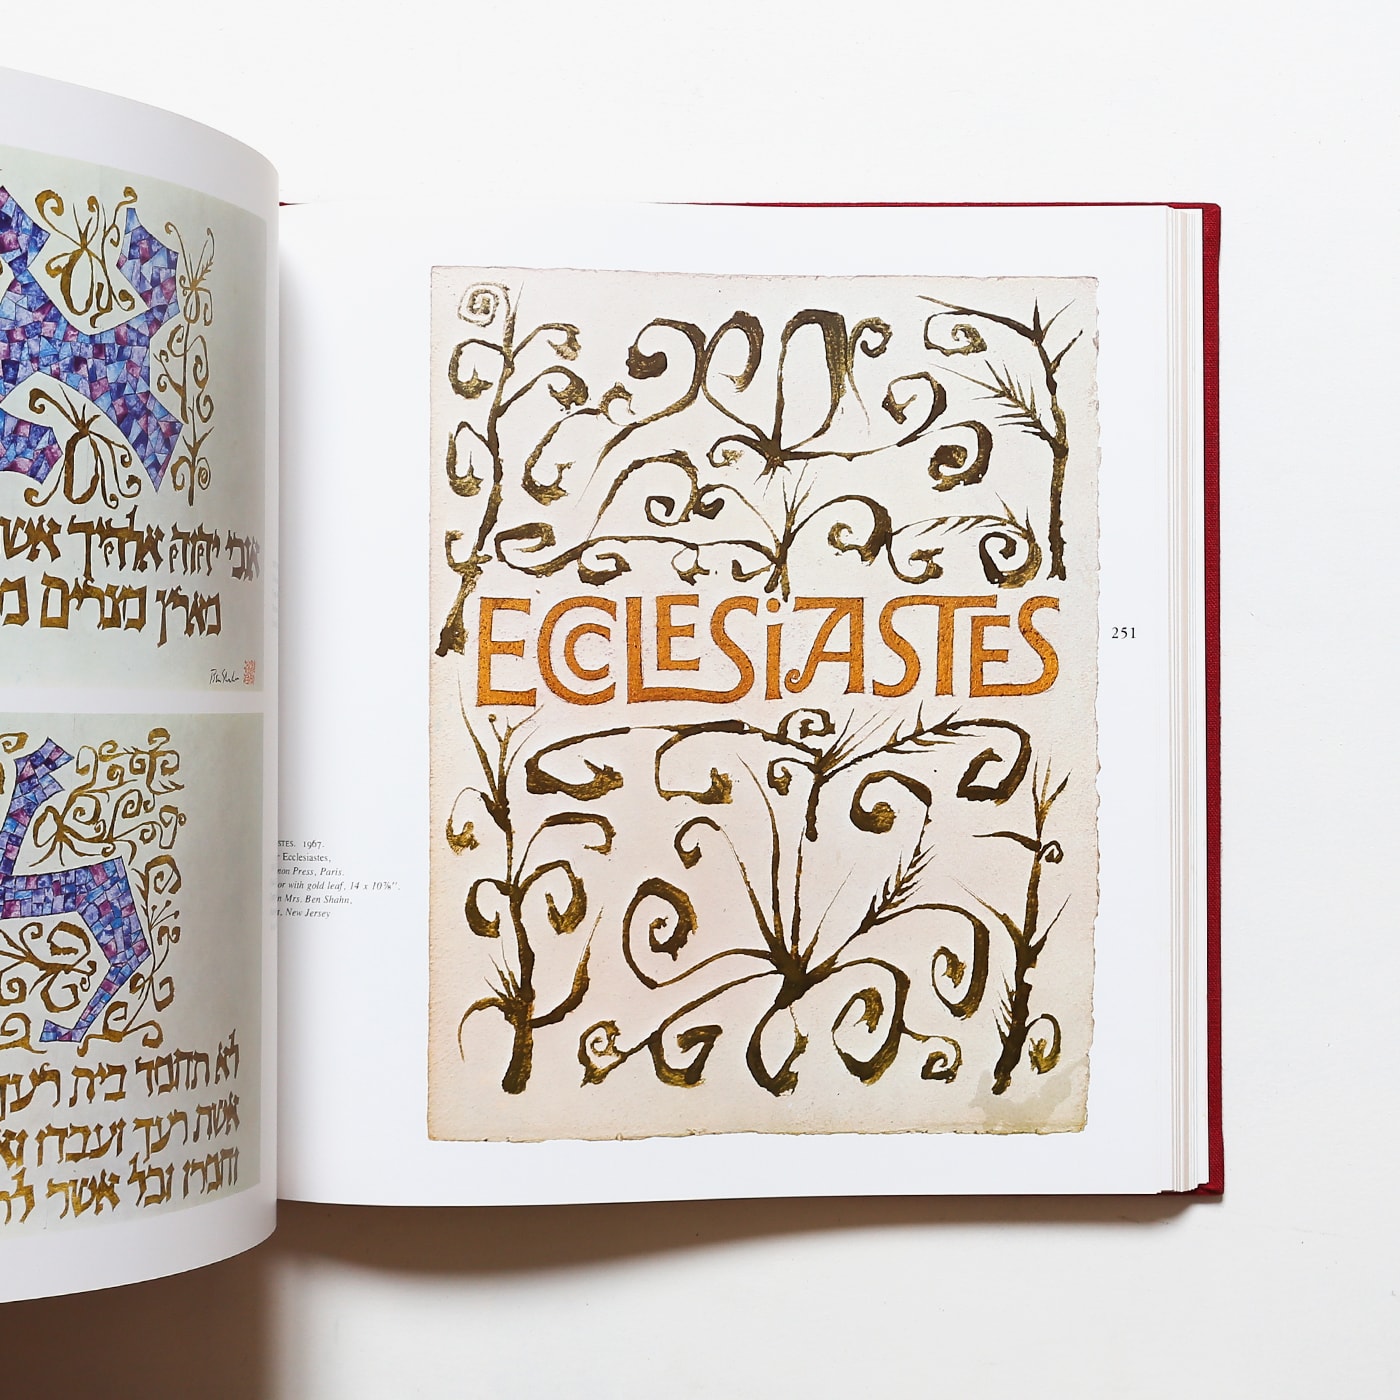 אנכי יהוה אלהיך
מארץ מצרים
Ben Shahn
לא תחמד בית רעך
אשת רעך ועבדו
וחמרו וכל אשר
1967.
Ecclesiastes,
Press, Paris.
with gold leaf, 14 x 10⅞".
Mrs. Ben Shahn,
New Jersey
ECCLESiASTES
251